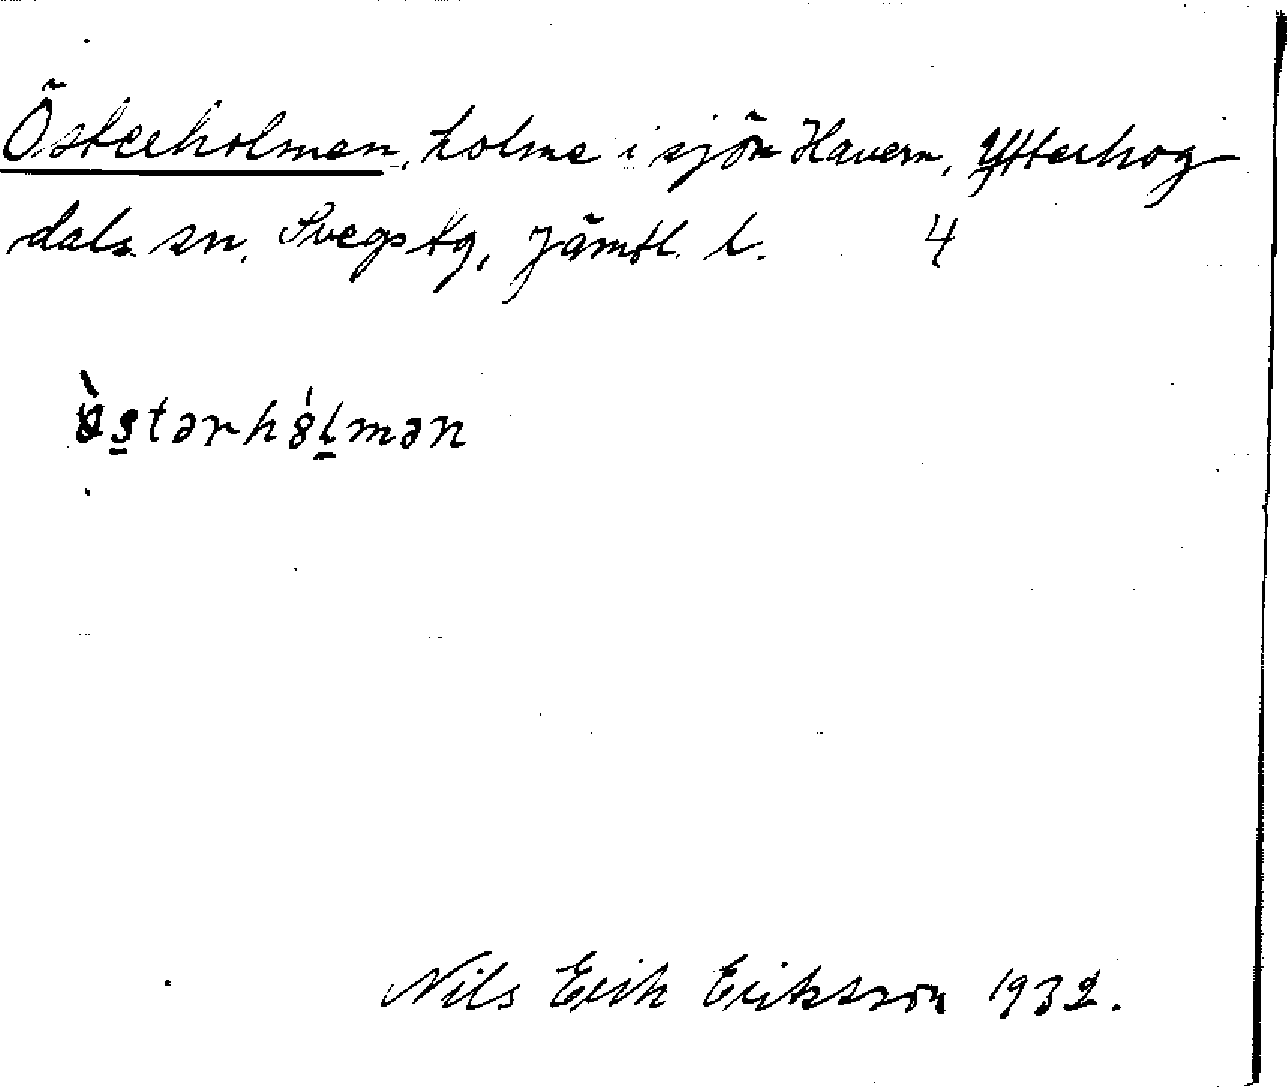 Österholmen, holme i sjön Havern, Ytterhog
dals sn, Svegs tg, Jämtl. l. 4
Nils Erik Eriksson 1932.